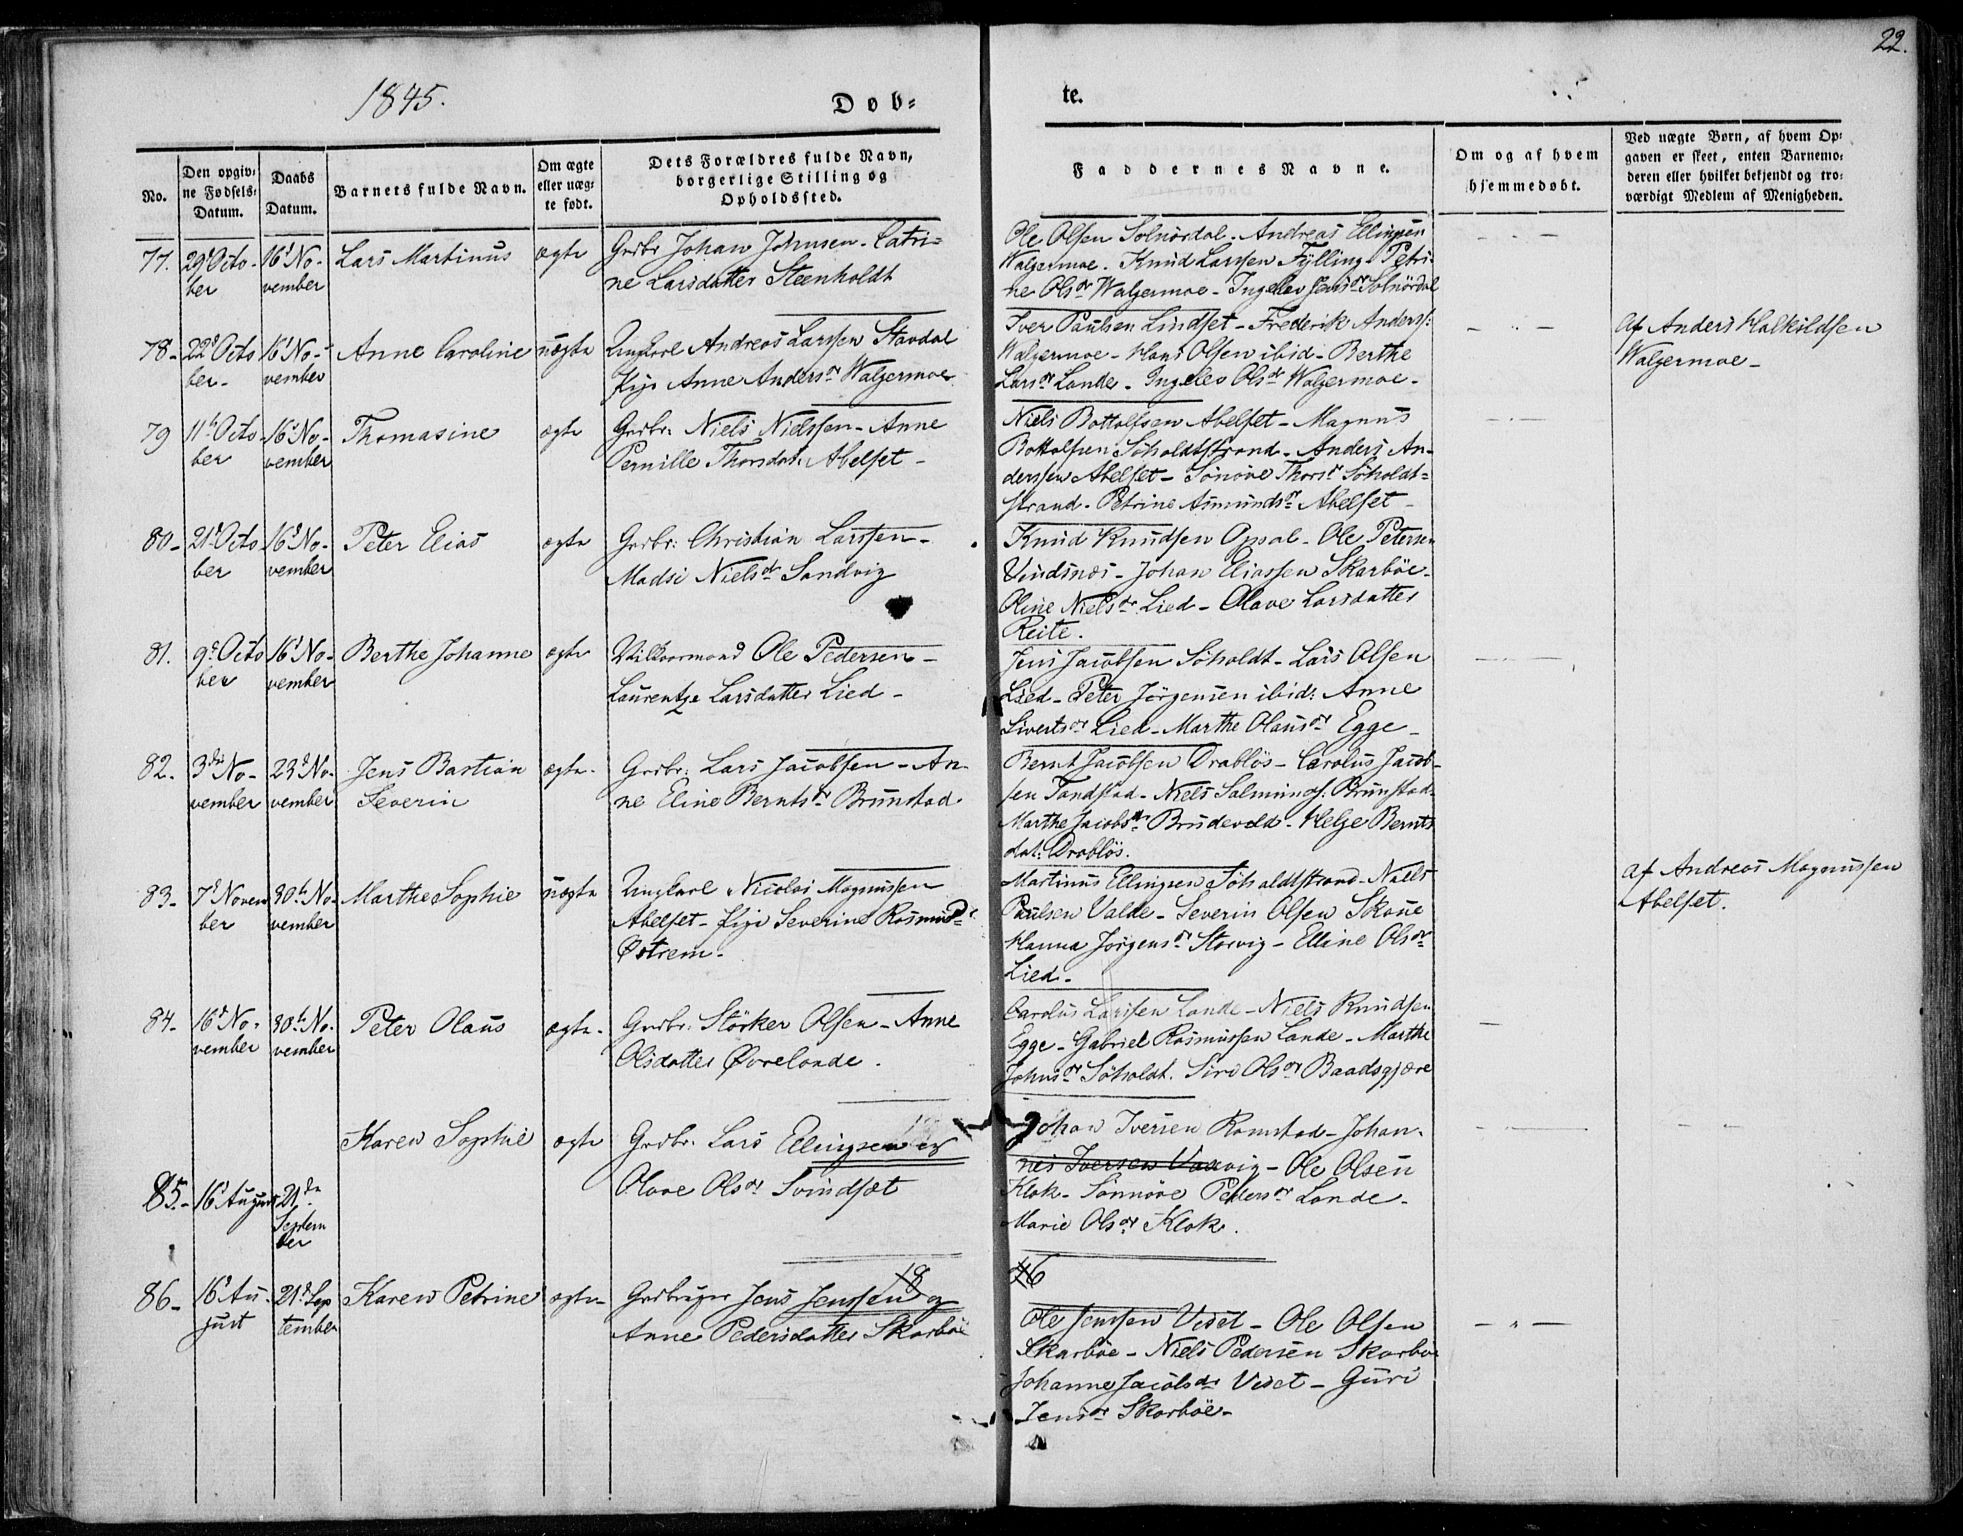 22.
1845.
Døb-
te.
No.
Den opgiv-
ne Fødsels-
Datum.
Daabs
Datum.
Barnets fulde Navn.
Om ægte
eller uæg-
te født.
Dets Forældres fulde Navn,
borgerlige Stilling og
Opholdssted.
Faddernes Navne.
Om og af hvem
hjemmedøbt.
Ved uægte Børn, af hvem Op-
gaven er skeet, enten Barnemo-
deren eller hvilket bekjendt og tro-
værdigt Medlem af Menigheden.
77.
29 Octo-
ber
16 No-
vember
Lars Martinus
ægte
Grdbr Johan Johnsen - Catri-
ne Larsdatter Steenholdt
Ole Olsen Solnördal - Andreas Ellingsen
Walgermoe - Knud Larssen Fylling - Petri-
ne Olsdr Walgermoe - Ingelev Jensdr Solnördal
78-
22 Octo
ber-
16 No-
vember
Anne Caroline
uægte
Ungkarl Andreas Larssen Stavdal
Pige Anne Andersdr Walgermoe
Iver Paulsen Lindset - Frederik Anderss:
Walgermoe - Hans Olsen ibid - Berthe
Larsdr Lande - Ingelev Olsdr Walgermoe -
Af Anders Halkildsen
Walgermoe -
79
11te Octo
ber
16 No-
vember
Thomasine
ægte
Grdbr: Niels Nielssen - Anne
Pernille Thorsdat: Abelset -
Niels Bottolfsen Abelset - Magnus
Bottolfsen Söholdtstrand - Anders An-
derssen Abelset - Sönöve Thorsdr Söholdt=
strand - Petrine Asmundsdr Abelset -
80-
21 Octo
ber
16 No-
vember
Peter Elias
ægte
Grdbr: Christian Larssen -
Madsi Nielsdr Sandvig
Knud Knudsen Opsal - Ole Petersen
Vindsnes - Johan Eliassen Skarböe -
Oline Nielsdr Lied - Olave Larsdatter
Reite.
81.
9 Octo
ber
16 No-
vember
Berthe Johanne
ægte
Vilkaarmand Ole Pedersen -
Laurentze Larsdatter Lied -
Jens Jacobsen Söholdt - Lars Olsen
Lied - Peter Jörgensen ibid: Anne
Sivertsdr Lied - Marthe Olausdr Egge -
82.
3die No-
vember
23 No-
vember
Jens Bastian
Severin
ægte-
Grdbr: Lars Jacobsen - An-
ne Eline Berntsdr Brunstad
Bernt Jacobsen Drablös - Carolus Jacob-
sen Tandstad - Niels Salmunds: Brunstad-
Marthe Jacobsdr Brudevold - Helge Bernts
dat: Drablös.
83-
7 Novem
ber
30te No-
vember
Marthe Sophie
uægte
Ungkarl Nicolai Magnussen
Abelset - Pige Severine Rasmusdr
Østrem -
Martinus Ellingsen Söholdtstrand - Niels
Paulsen Valde - Severin Olsen Skoue
Hanna Jörgensdr Storvig - Elline Olsdr
Lied -
Af Andreas Magnussen
Abelset.
84-
16 No-
vember
30te No-
vember
Peter Olaus
ægte-
Grdbr: Störker Olsen - Anne
Olsdatter Øvrelande.
Carolus Larssen Lande - Niels Knudsen
Egge - Gabriel Rasmussen Lande - Marthe
Johnsdr Söholdt. Siri Olsdr Baadsgjære
85-
16 August
21de
Septem
ber
Karen Sophie
ægte
Grdbr. Lars Ellingsen og
Olave Olsdr Svindset
Johan Iversen Ramstad - Johan-
nes Iversen Vasvig - Ole Olsen
Klok - Sönnöve Pedersdr Lande -
Marie Olsdr Klok.
86-
16 Au-
gust
21 Sep
tember
Karen Petrine
ægte-
18
Grdbruger Jens Jenssen og
Anne Pedersdatter Skarböe
46
Ole Jenssen Vedet - Ole Olsen
Skarböe - Niels Pedersen Skarböe
Johanne Jacobsdr Vedet - Guri
Jensdr Skarböe -